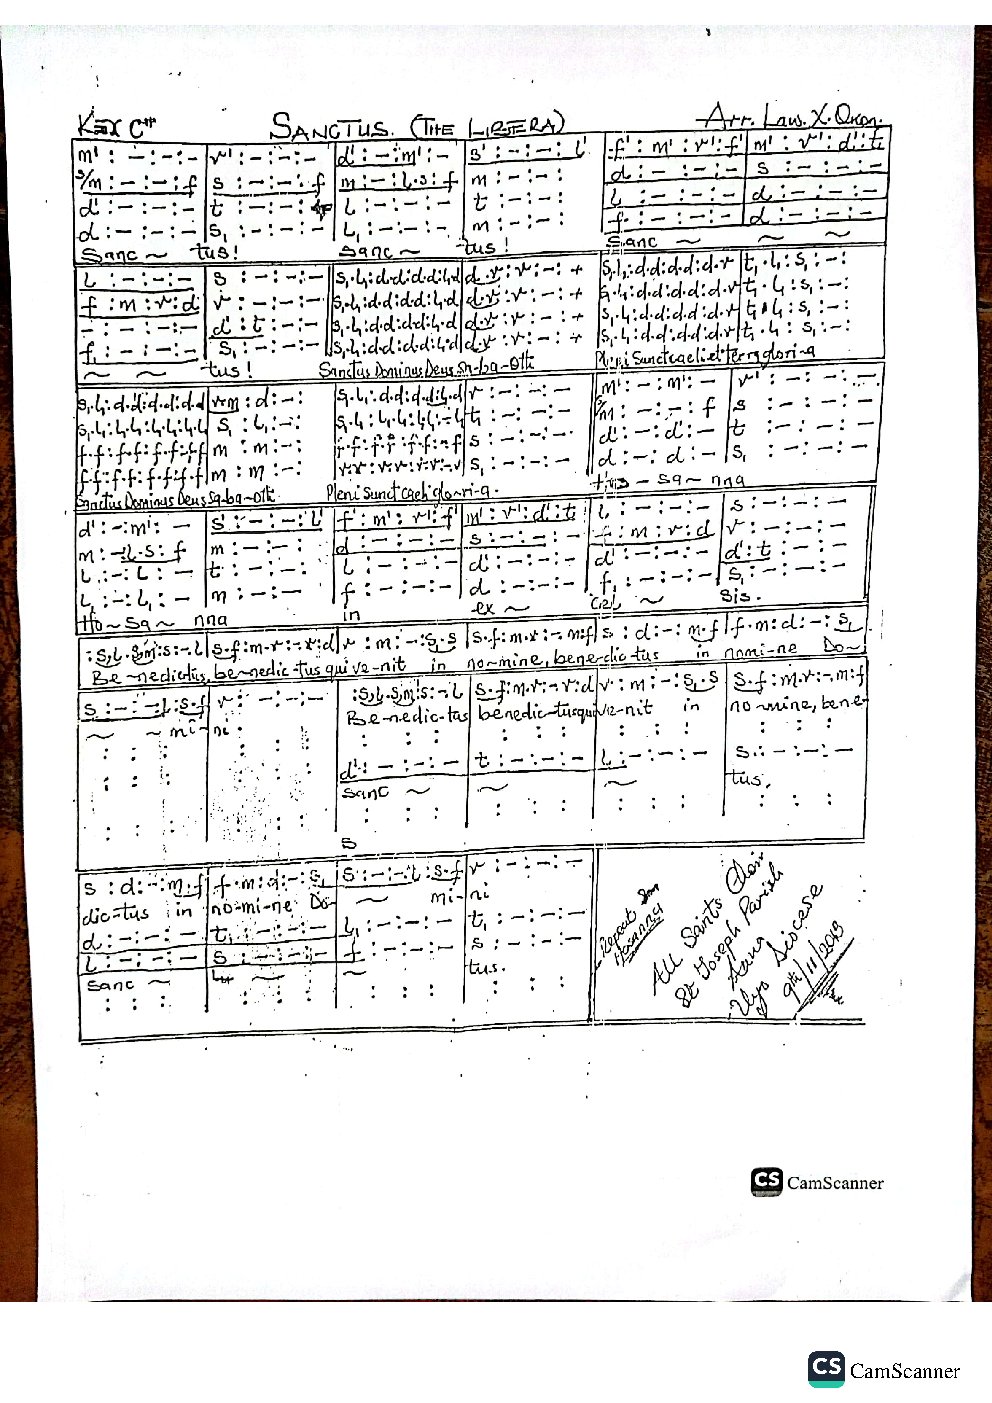 KEY C# SANCTUS. (THE LIBERA) Arr. Law. X. Onon.
m' : – : – : – | r' : – : – : – | d' : – : m' : – | s' : – : – : l' | f' : m' : r' : f' | m' : r' : d' : t
s/m : – : – : f | s : – : – : f | m : – : l . s : f | m : – : – : | d : – : – : – | s : – : – : –
d' : – : – : – | t : – : – : | L : – : – : – | t : – : – : | l : – : – : – | d : – : – : –
d : – : – : – | s₁ : – : – : – | L₁ : – : – : – | m : – : – : | f : – : – : – | d : – : – : –
Sanc ~ tus! Sanc ~ tus! Sanc ~ ~ ~
L : – : – : – | s : – : – : – | s₁.l₁:d.d:d.d:l₁.d | d.r : r : – : + | s₁.l₁:d.d:d.d:d.r | t₁.l₁ : s₁ : – :
f : m : r : d | r : – : – : – | s₁.l₁:d.d:d.d:l₁.d | d.r : r : – : + | s₁.l₁:d.d:d.d:d.r | t₁.l₁ : s₁ : – :
– : – : – : – | d' : t : – : – | s₁.l₁:d.d:d.d:l₁.d | d.r : r : – : + | s₁.l₁:d.d:d.d:d.r | t₁.l₁ : s₁ : – :
f₁ : – : – : – | s₁ : – : – : – | s₁.l₁:d.d:d.d:l₁.d | d.r : r : – : + | s₁.l₁:d.d:d.d:d.r | t₁.l₁ : s₁ : – :
~ ~ tus! Sanctus Dominus Deus Sa-ba-oth Pleni Sunct caeli et terra glori-a
s₁.l₁:d.d:d.d:d.d | r.m : d : – : | s₁.l₁:d.d:d.d:l₁.d | r : – : – : – | m' : – : m' : – | r' : – : – : –
s₁.l₁:l₁.l₁:l₁.l₁:l₁.l₁ | s₁ : l₁ : – : | s₁.l₁:l₁.l₁:l₁.l₁:–.l₁ | t₁ : – : – : – | s/m : – : – : f | s : – : – : –
f.f:f.f:f.f:f.f | m : m : – : | f.f:f.f:f.f:–.f | s : – : – : – | d' : – : d' : – | t : – : – : –
f.f:f.f:f.f:f.f | m : m : – : | r.r:r.r:r.r:–.r | s₁ : – : – : – | d : – : d : – | s₁ : – : – : –
Sanctus Dominus Deus Sa-ba-oth Pleni Sunct caeli glo-ri-a. Ho – sa ~ nna
d' : – : m' : – | s' : – : – : l' | f' : m' : r' : f' | m' : r' : d' : t | l : – : – : – | s : – : – : –
m : – : l.s : f | m : – : – : – | d : – : – : – | s : – : – : – | f : m : r : d | r : – : – : –
L : – : L : – | t : – : – : – | L : – : – : – | d' : – : – : – | d' : – : – : – | d' : t : – : –
L₁ : – : L₁ : – | m : – : – : – | f : – : – : – | d : – : – : – | f₁ : – : – : – | s₁ : – : – : –
Ho ~ sa ~ nna in ex ~ cel ~ sis.
: s₁.l.s.m:s:–.l | s.f:m.r:–.r:d | r : m : – : s₁.s | s.f:m.r:–.m:f | s : d : – : m.f | f.m:d:–:s₁
Be-nedictus, benedic-tus qui ve-nit in no-mine, bene-dic-tus in nomi-ne Do-
s : – : – : l : s.f | r : – : – : – | : s₁.l.s.m:s:–.l | s.f:m.r:–.r:d | r : m : – : s₁.s | s.f:m.r:–.m:f
~ ~ mi- ni. Be-nedic-tus benedic-tus qui ve-nit in no-mine, bene-
d' : – : – : – | t : – : – : – | l : – : – : – | s : – : – : –
sanc ~ ~ ~ tus.
s
s : d : – : m.f | f.m:d:–:s₁ | s : – : – : l : s.f | r : – : – : –
dic-tus in no-mi-ne Do- ~ mi-ni
d : – : – : – | t₁ : – : – : – | l₁ : – : – : – | t₁ : – : – : –
L : – : – : – | s : – : – : – | f : – : – : – | s : – : – : –
sanc ~ ~ ~ tus.
Repeat
Hosanna
All Saints Choir
St Joseph Parish
Uyo Diocese
9th/11/2013
CS CamScanner
CS CamScanner